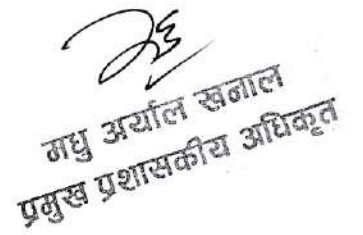 मधु अर्याल खनाल
प्रमुख प्रशासकीय अधिकृत